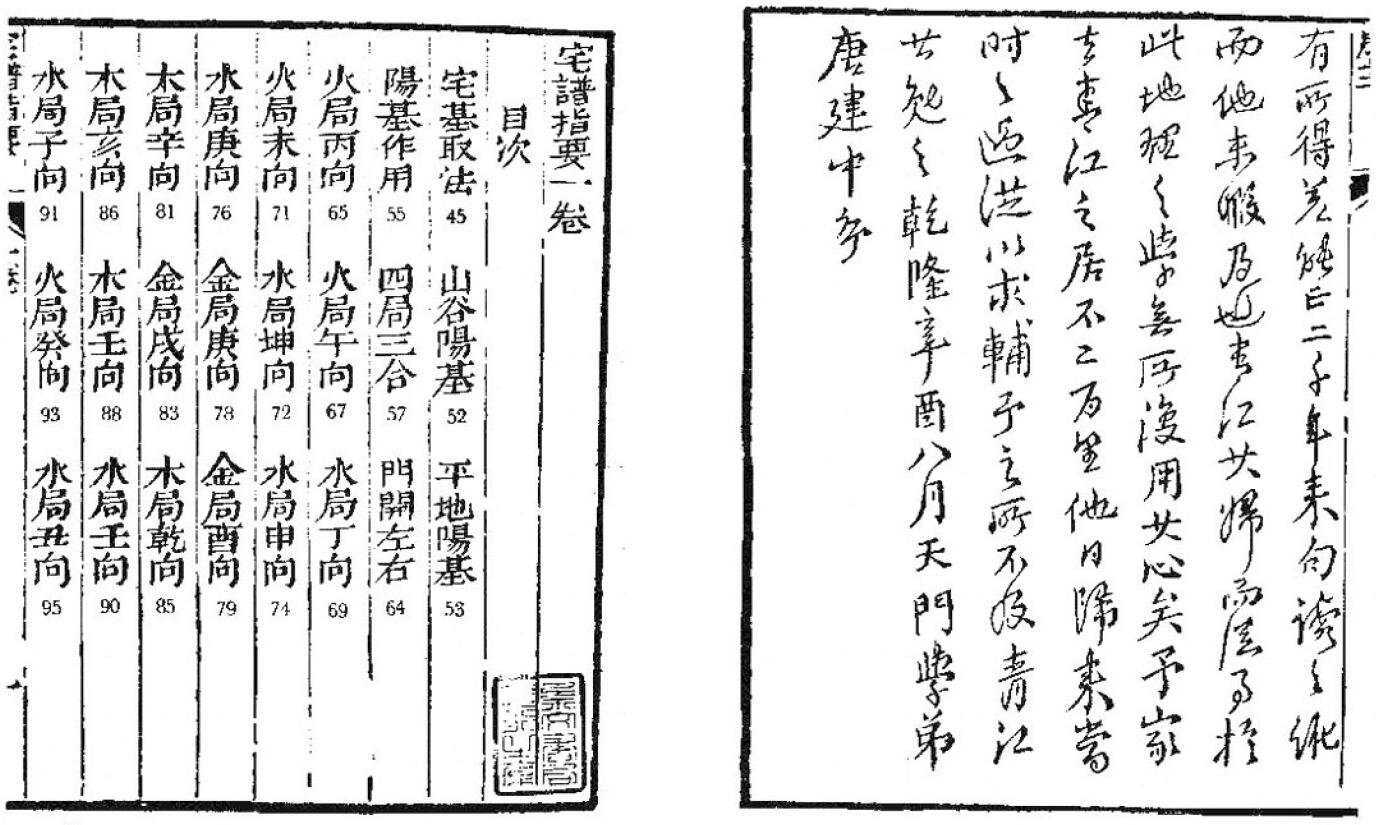 卷二
有所得差能正二千年来句讀之紕
而他未暇及也青江其歸而於
此地理之學無所復用其心矣予家
去青江之居不二百里他日歸来當
时〻過從以求輔予之所不及青江
其勉之乾隆辛酉八月天門學弟
唐建中序
宅譜指要一卷
目次
宅基取法 45 山谷陽基 52 平地陽基 53
陽基作用 55 四局三合 57 門開左右 64
火局丙向 65 火局午向 67 水局丁向 69
火局未向 71 水局坤向 72 水局申向 74
水局庚向 76 金局庚向 78 金局酉向 79
木局辛向 81 金局戌向 83 木局乾向 85
木局亥向 86 木局壬向 88 水局壬向 90
水局子向 91 火局癸向 93 水局丑向 95
宅譜指要 一卷